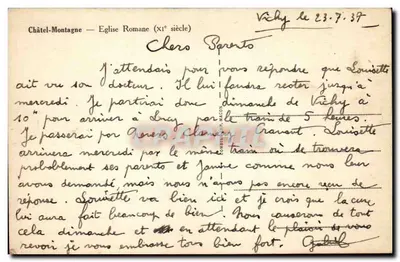 Châtel-Montagne — Eglise Romane (XIe siècle)
Vichy le 23-7-37
Chers Parents
J'attendais pour vous répondre que Louisette
ait vu son docteur. Il lui faudra rester jusqu'à
mercredi. Je partirai donc dimanche de Vichy à
10h pour arriver à par le train de 5 heures.
Je passerai par Clamecy Cravant. Louisette
arrivera mercredi par le même train où se trouvera
probablement ses parents et Janine comme nous leur
avons demandé mais nous n'avons pas encore reçu de
réponse. Louisette va bien ici et je crois que la cure
lui aura fait beaucoup de bien. Nous causerons de tout
cela dimanche et en attendant le plaisir de vous
revoir je vous embrasse tous bien fort.